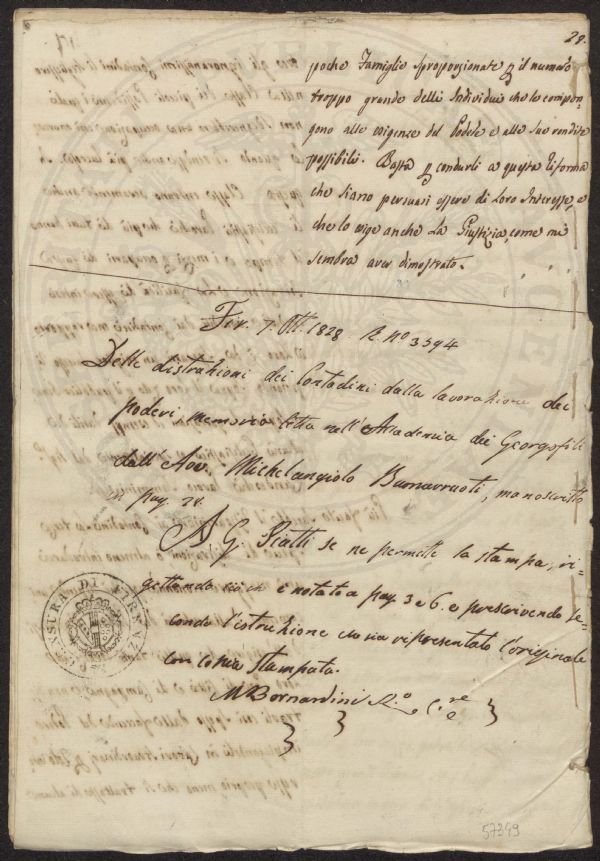 29.
poche Famiglie sproporzionate p il numero
troppo grande delli Individui che lo compon-
gono alle esigenze del Podere e alle sue rendite
possibili. Basta p condurli a questa riforma
che siano persuasi essere di Loro Interesse, e
che lo esige anche La Giustizia, come mi
sembra aver dimostrato.
Fir. 7. Ott. 1828 R. No 3394
Delle distrazioni dei Contadini dalla lavorazione dei
poderi, memoria letta nell'Accademia dei Georgofili
dall'Avv. Michelangiolo Buonarruoti, manoscritto
in pag 29.
A G. Piatti se ne permette la stampa, ri-
gettando ciò ch' è notato a pag 3 e 6. e prescrivendo se-
condo l'istruzione che sia ripresentato l'originale
con copia stampata.
M Bernardini R.o C.re
CENSURA DI FIRENZE
57349